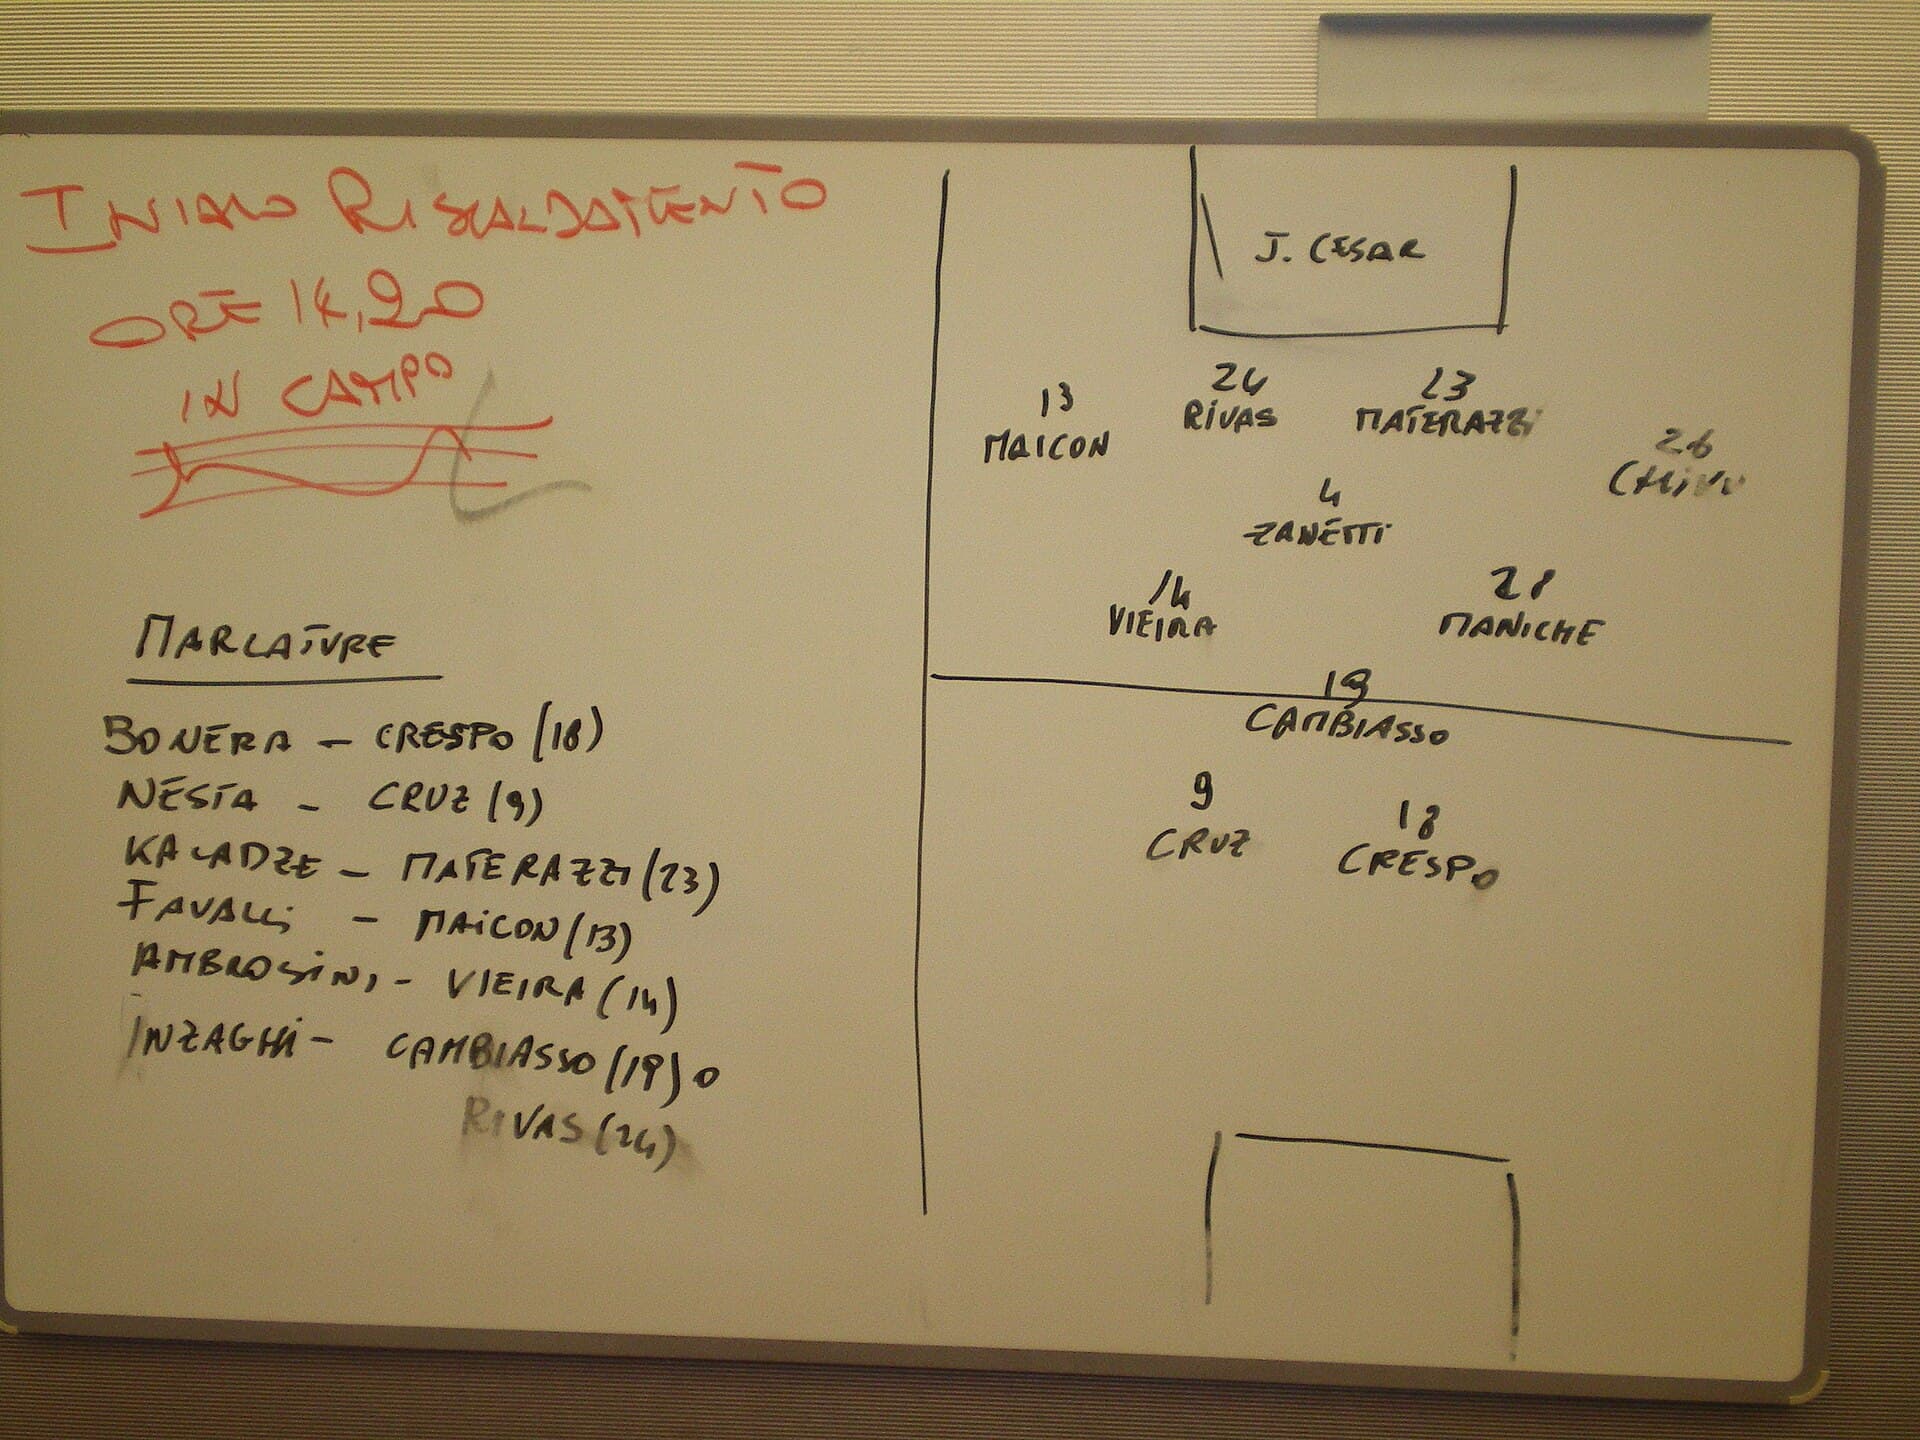 INIZIO RISCALDAMENTO
ORE 14,20
IN CAMPO
MARCATURE
BONERA - CRESPO (18)
NESTA - CRUZ (9)
KALADZE - MATERAZZI (23)
FAVALLI - MAICON (13)
AMBROSINI - VIEIRA (14)
INZAGHI - CAMBIASSO (19) O
RIVAS (24)
J. CESAR
13
MAICON
24
RIVAS
23
MATERAZZI
26
CHIVU
4
ZANETTI
14
VIEIRA
28
MANICHE
19
CAMBIASSO
9
CRUZ
18
CRESPO